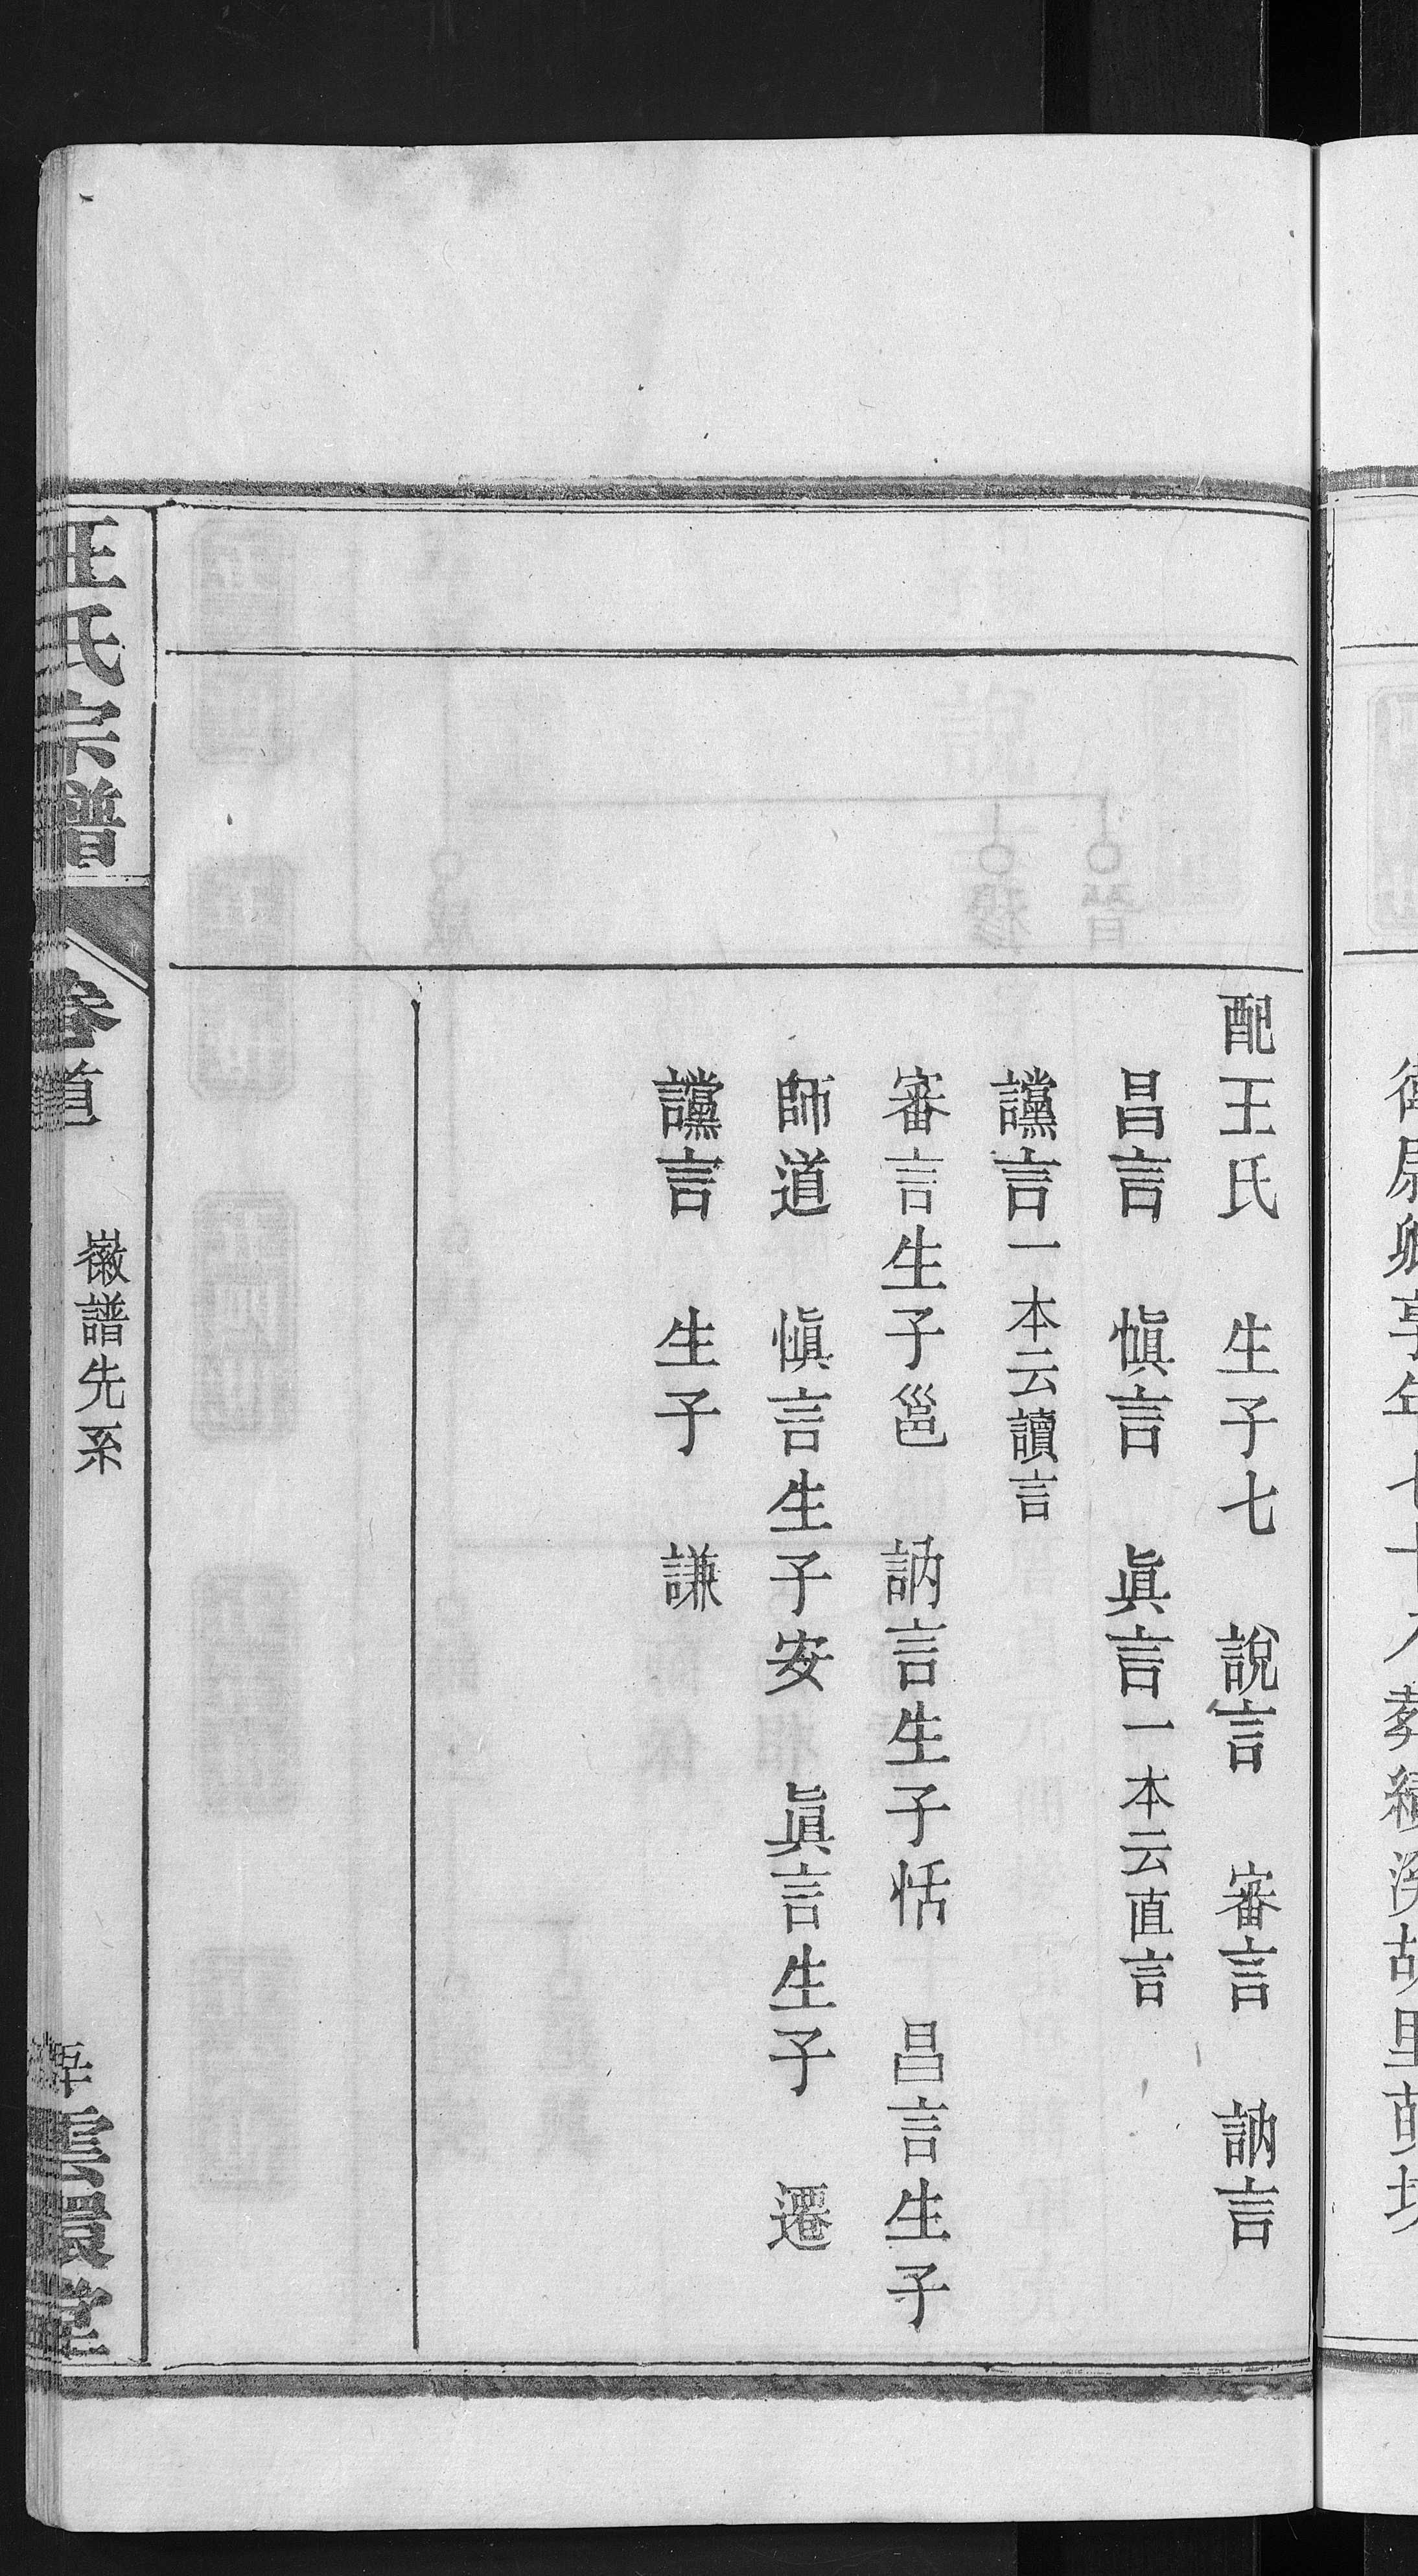 配王氏　生子七　說言　審言　訥言
昌言　愼言　眞言一本云直言
讜言一本云讀言
審言生子邕　訥言生子恬　昌言生子
師道　愼言生子安　眞言生子　遷
讜言　生子　謙
氏宗譜
徽譜先系
雲環堂